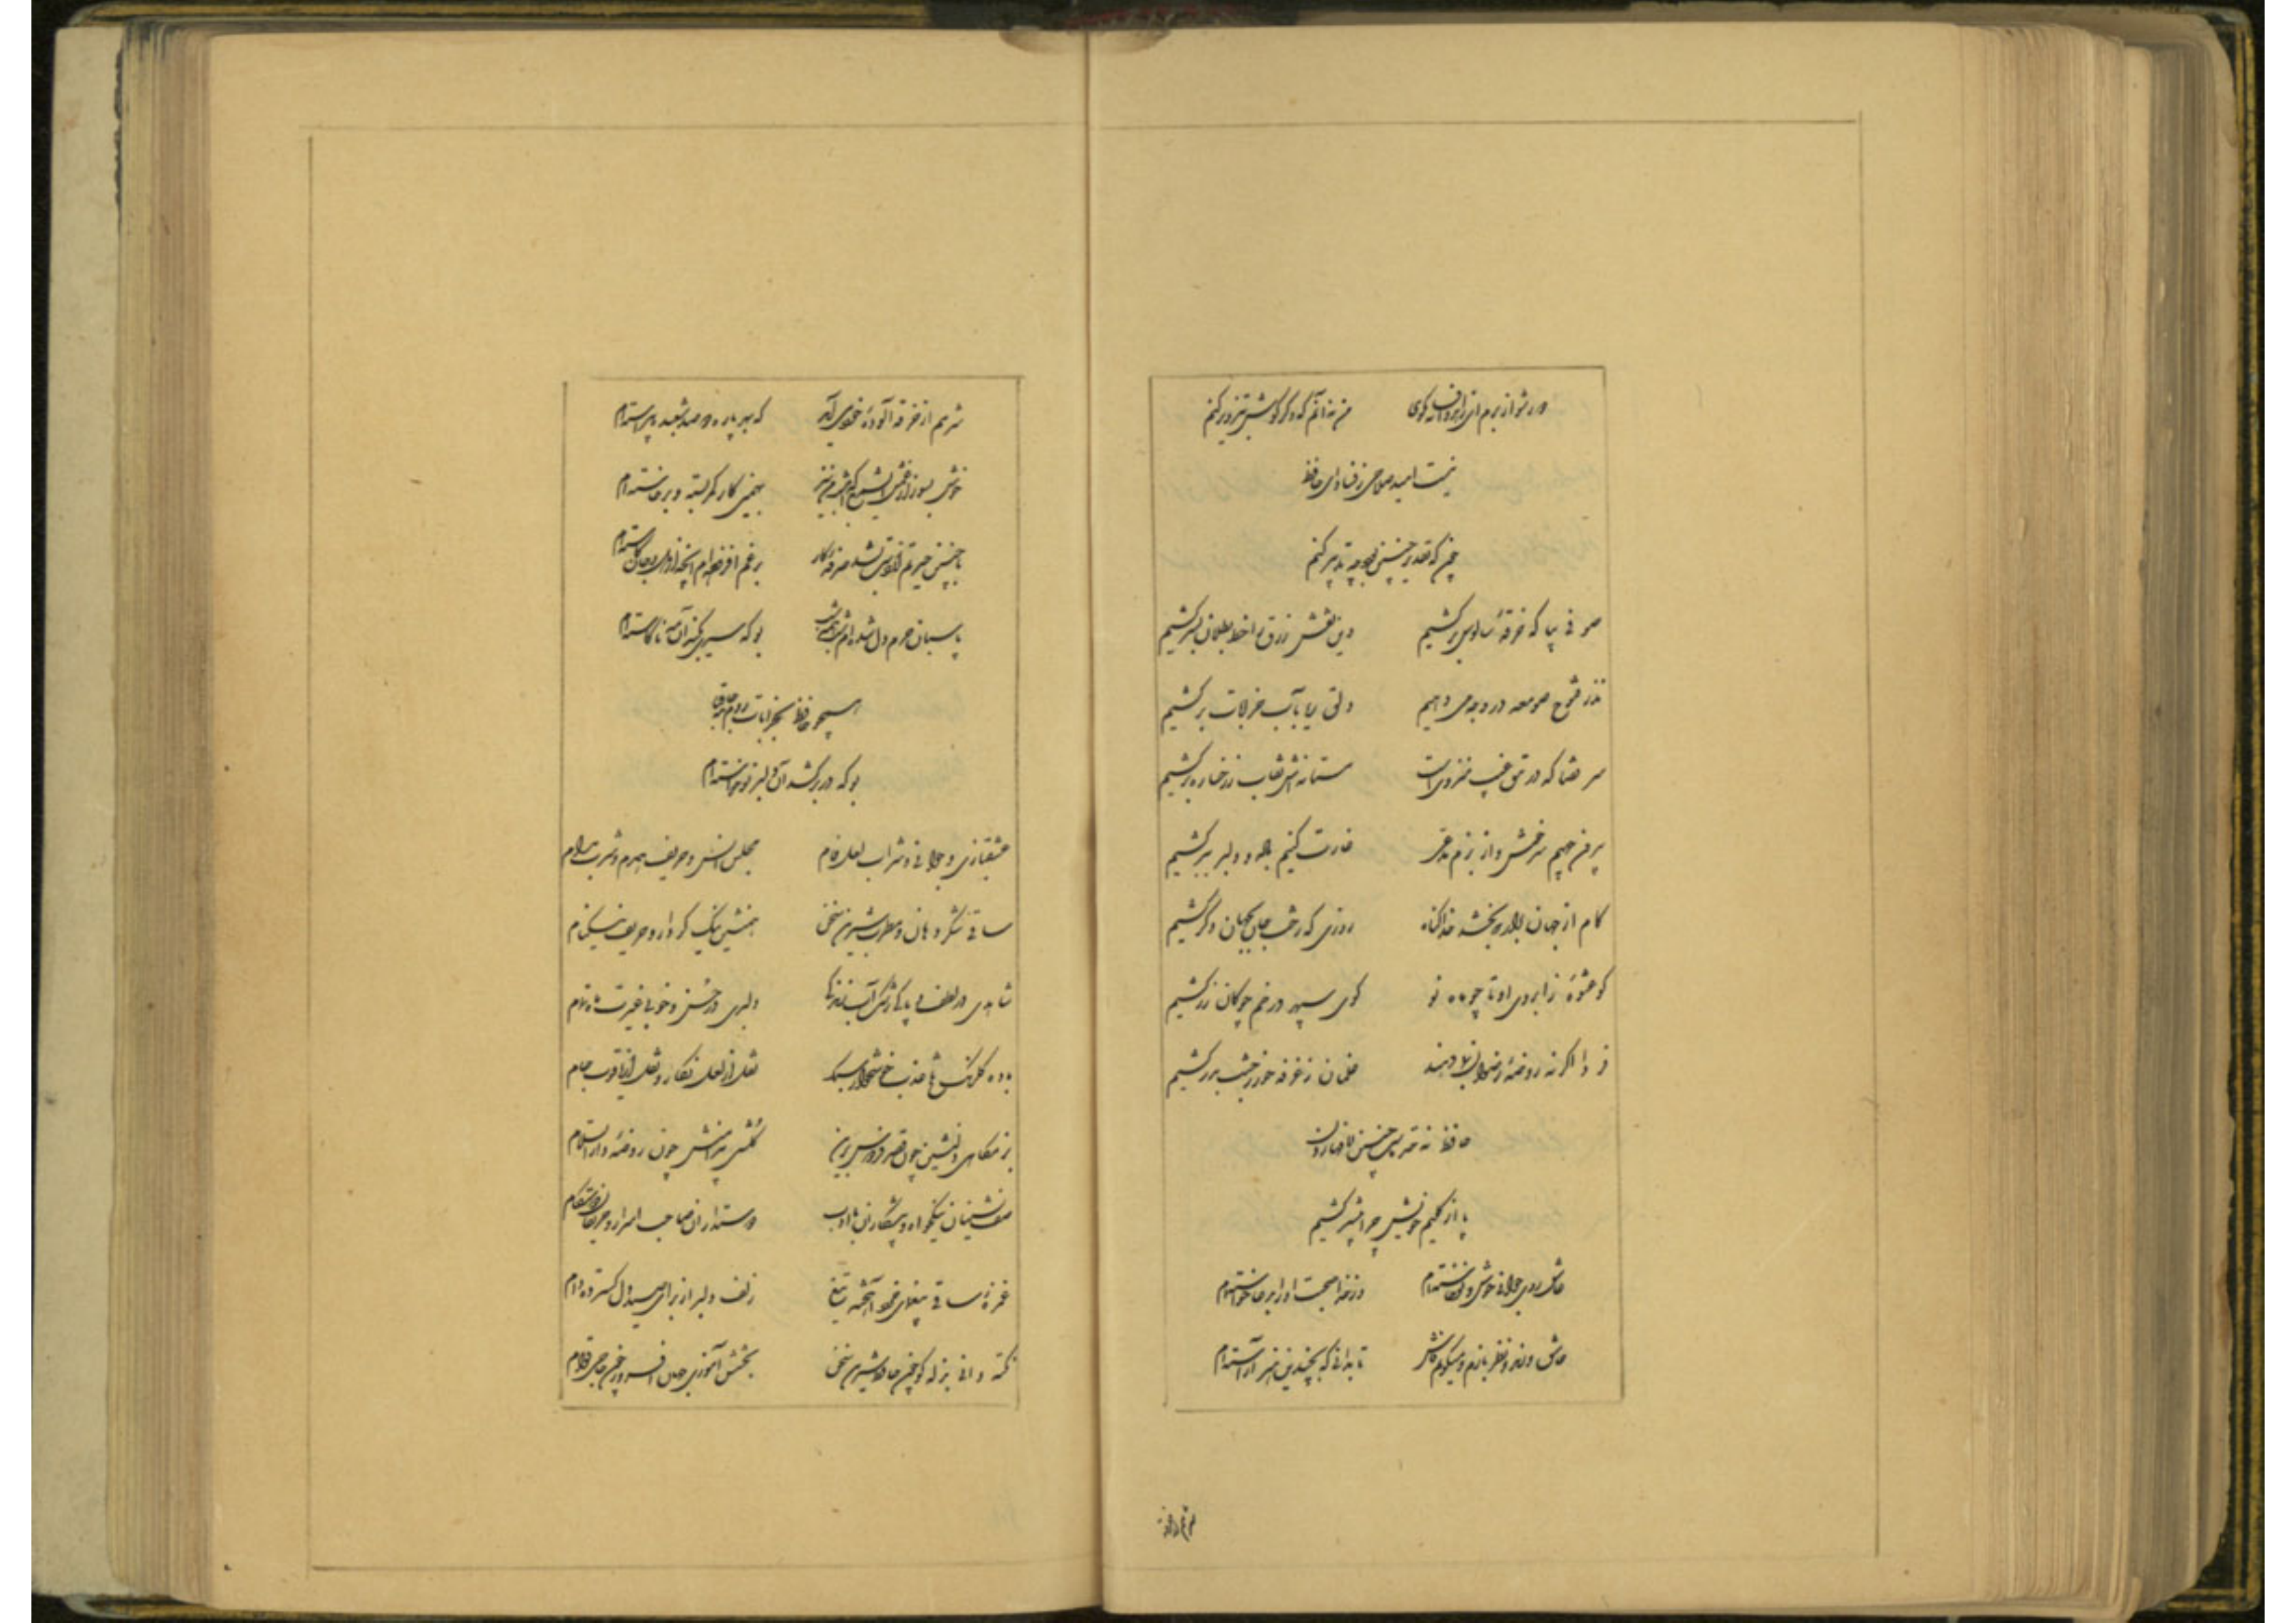 دور شو از برم ای زاهد و افسانه مگوی من نه آنم که دگر گوش بتزویر کنم
نیست امید صلاحی ز فساد ای حافظ
چونکه تقدیر چنین بود چه تدبیر کنم
صوفی بیا که خرقهٔ سالوس برکشیم وین نقش زرق را خط بطلان بسر کشیم
نذر فتوح صومعه در وجه می دهیم دلق ریا بآب خرابات برکشیم
سر قضا که در تتق غیب منزویست مستانه‌اش نقاب ز رخساره برکشیم
بیرون جهیم سرخوش و از بزم مدعی غارت کنیم باده و دلبر ببر کشیم
کام از جهان بخشد خدا گناه روزی که رخت جان بجهان دگر کشیم
کو عشوهٔ ز ابروی او تا چو ماه نو گوی سپهر در خم چوگان زر کشیم
فردا اگر نه روضهٔ رضوان بما دهند غلمان ز غرفه حور ز جنت بدر کشیم
حافظ نه حد ماست چنین لافها زدن
پا از گلیم خویش چرا بیشتر کشیم
عاشق روی جوانی خوش نوخاسته‌ام وز خدا صحبت او را بدعا خواسته‌ام
عاشق و رند و نظربازم و میگویم فاش تا بدانی که بچندین هنر آراسته‌ام
شرمم از خرقه آلودهٔ خود می‌آید که بهر پاره دو صد شعبده پیراسته‌ام
خوش بسوز از غمش ای شمع که امشب من نیز بهمین کار کمر بسته و برخاسته‌ام
با چنین حیرتم از دست بشد صرفه کار در غم افزوده‌ام آنچه از دل و جان کاسته‌ام
پاسبان حرم دل شده‌ام شب همه شب بو که سیری بکند آن مه ناکاسته‌ام
همچو حافظ بخرابات روم جامه قبا
بو که در برکشد آن دلبر نوخاسته‌ام
عشقبازی و جوانی و شراب لعل فام مجلس انس و حریف همدم و شرب مدام
ساقی شکر دهان و مطرب شیرین سخن همنشین نیک کردار و حریف نیکنام
شاهدی در لطف و پاکی رشک آب زندگی دلبری در حسن و خوبی غیرت ماه تمام
باده گلرنگ تلخ عذب خوشخوار سبک نقل از لعل نگار و نقل از یاقوت جام
بزمگاهی دلنشین چون قصر فردوس برین گلشنی پیرامنش چون روضهٔ دارالسلام
صف نشینان نیکخواه و پیشکاران با ادب دوستداران صاحب اسرار و حریفان دوستکام
غمزهٔ ساقی بیغمای خرد آهخته تیغ زلف دلبر از برای صید دل گسترده دام
نکته دانی بذله گو چون حافظ شیرین سخن بخشش آموزی جهان افروز چون حاجی قوام